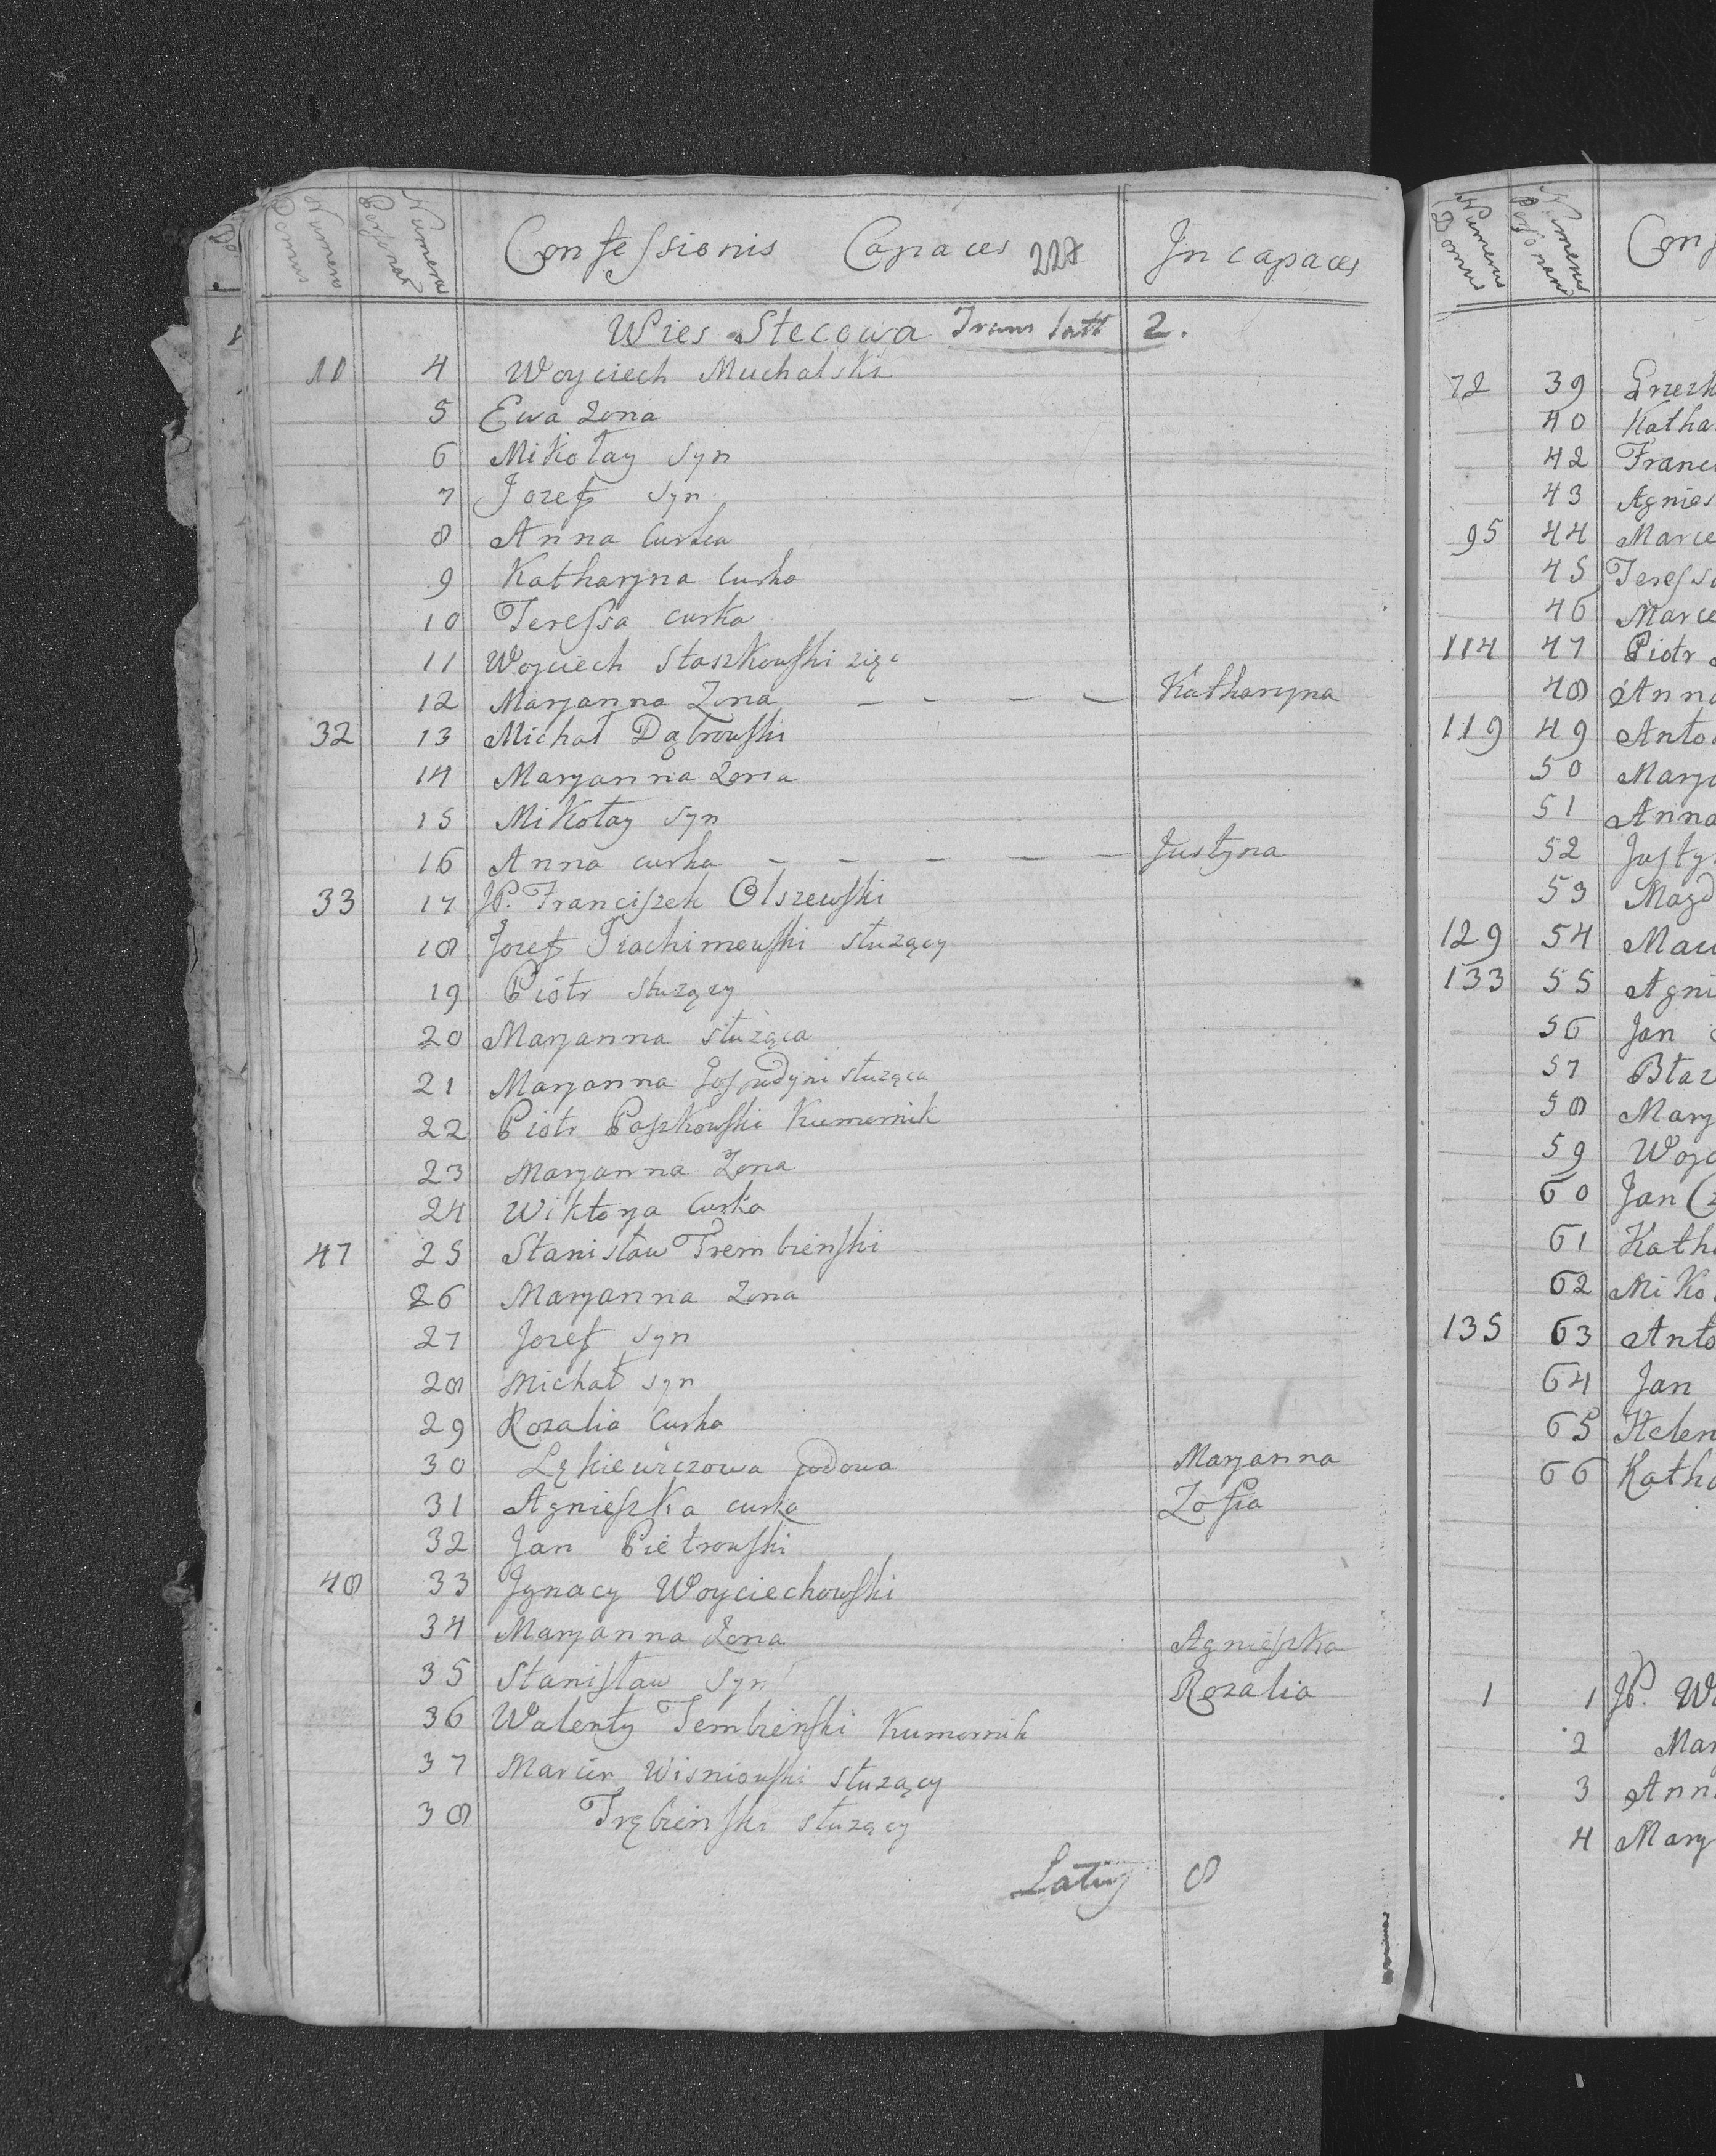 Numero Domus Numero Personar Confessionis Capaces 228 Incapaces
Wies Stecowa Trans latt 2.
10 4 Woyciech Muchalski
5 Ewa Zona
6 Mikołay syn
7 Jozef syn
8 Anna Curka
9 Katharyna Curka
10 Teressa curka
11 Woyciech Staszkowski zięc
12 Maryanna Zona - - - - Katharyna
32 13 Michał Dąbrowski
14 Maryanna Zona
15 Mikołay syn
16 Anna curka - - - - - Justyna
33 17 JP. Franciszek Olszewski
18 Jozef służący
19 Piotr służący
20 Maryanna służąca
21 Maryanna służąca
22 Piotr Paszkowski Kumornik
23 Maryanna Zona
24 Wiktorya Curka
47 25 Stanisław Trembienski
26 Maryanna Zona
27 Jozef syn
28 Michał syn
29 Rozalia Curka
30 Lękiewiczowa Maryanna
31 Agnieszka curka Zofia
32 Jan Pietrowski
48 33 Jgnacy Woyciechowski
34 Maryanna Zona Agnieszka
35 Stanisław Syn Rozalia
36 Walenty Tembienski Kumornik
37 Marcin Wisniowski służący
38 Trębienski służący
Latus 8
Numerus Domus Numerus Personar Conf
72 39
40 Katha
42 Franci
43 Agnies
95 44 Marce
45 Teressa
46 Marce
114 47 Piotr
48 Anna
119 49 Anto
50 Marya
51 Anna
52 Justy
53 Magd
129 54
133 55 Agni
56 Jan
57 Błaz
58 Mary
59 Woyc
60 Jan
61 Kath
62 Miko
135 63 Anto
64 Jan
65 Helen
66 Katha
1 1 JP. W
2 Mar
3 Ann
4 Mary